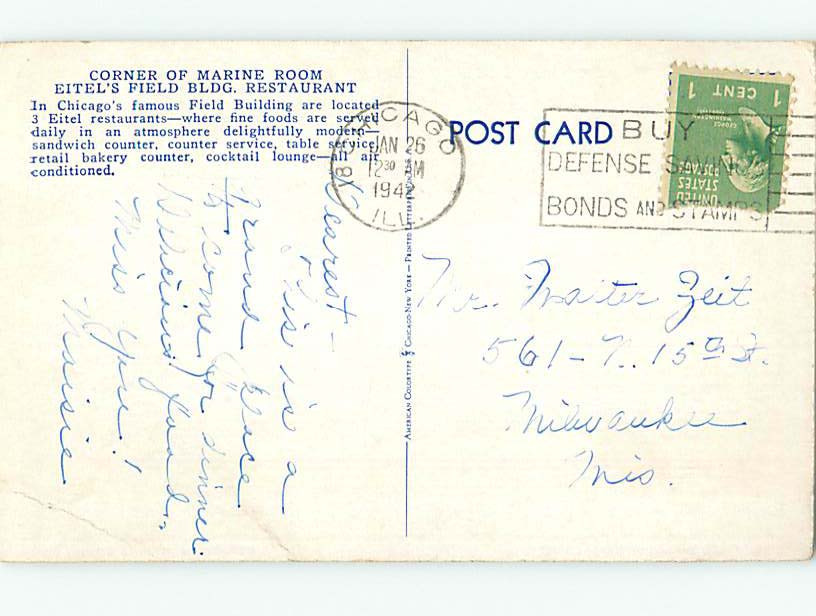 CORNER OF MARINE ROOM
EITEL'S FIELD BLDG. RESTAURANT
In Chicago's famous Field Building are located
3 Eitel restaurants—where fine foods are served
daily in an atmosphere delightfully modern—
sandwich counter, counter service, table service,
retail bakery counter, cocktail lounge—all air
conditioned.
Dearest—
This is a
grand place
to come for dinner.
Delicious food.
Miss you!
Maisie
AMERICAN COLORTYPE CHICAGO-NEW YORK — PRINTED
CHICAGO
JAN 26
12 30 AM
194
ILL.
POST CARD
BUY
DEFENSE SAVINGS
BONDS AND STAMPS
1 CENT 1
GEORGE WASHINGTON
UNITED STATES POSTAGE
Mr. Zeit
561-N. 15th St.
Milwaukee
Wis.